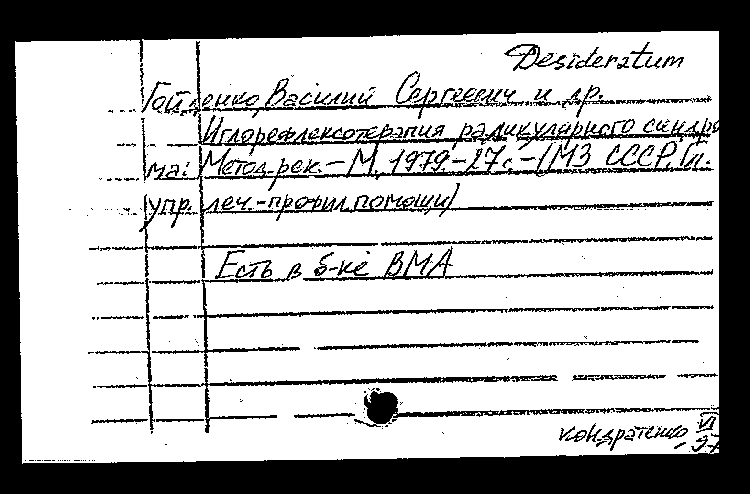 Desideratum
Гойденко, Василий Сергеевич и др.
Иглорефлексотерапия радикулярного синдро
ма: Метод.рек. – М., 1979. – 27с. – (МЗ СССР, Гл.
упр. леч.-профил. помощи)
Есть в б-ке ВМА
Кондратенко VI
97